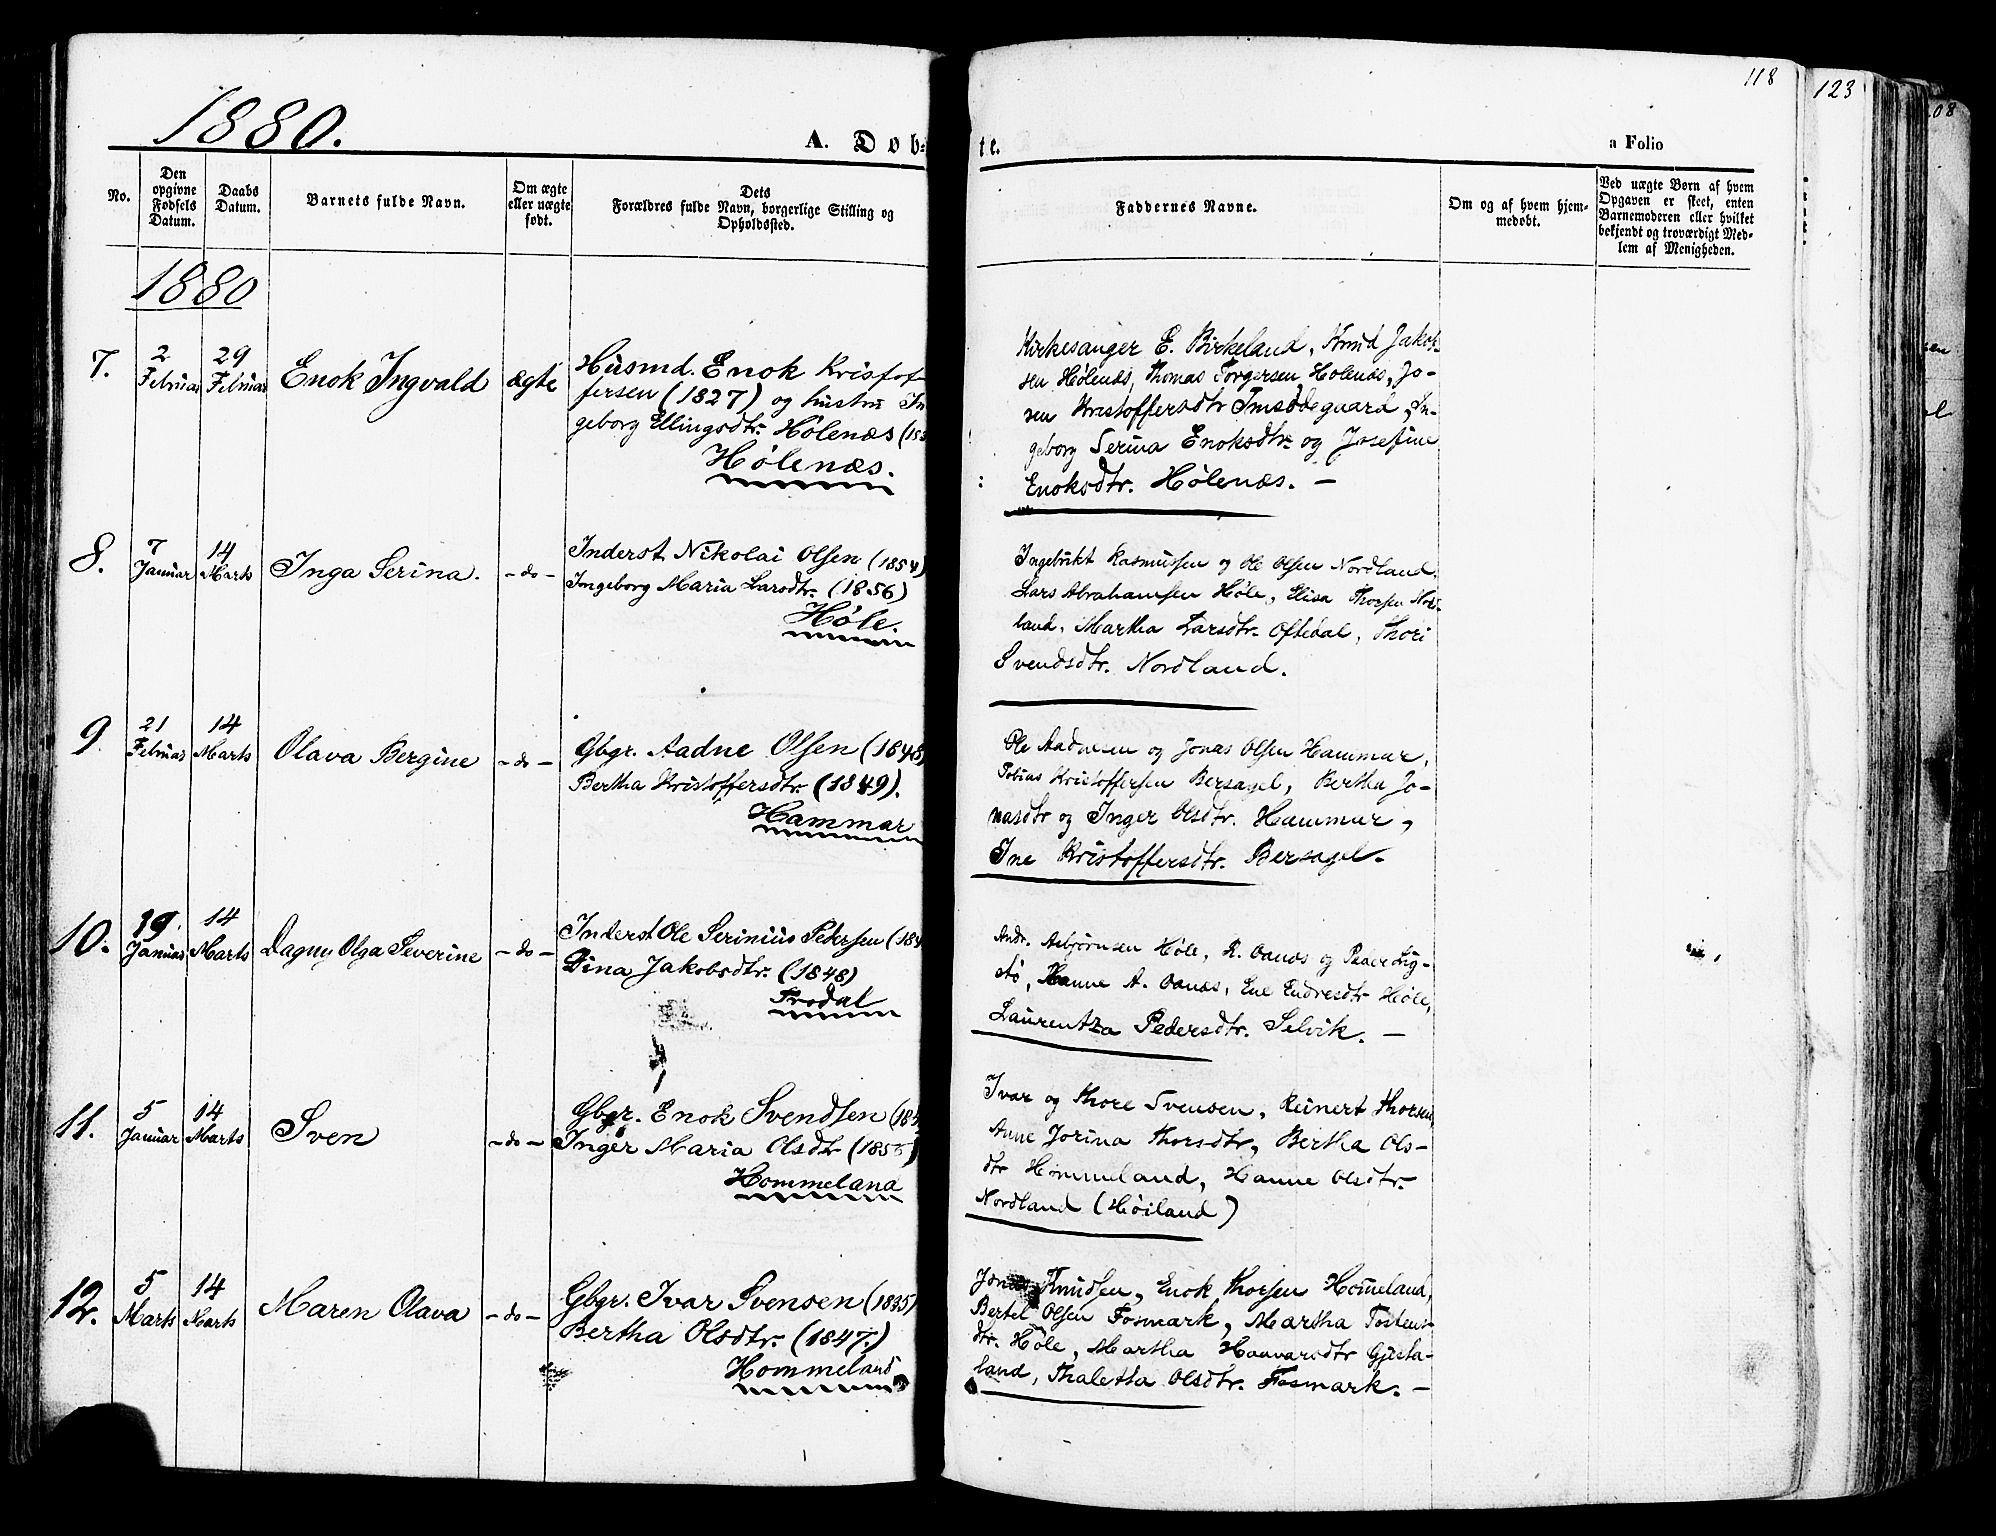 118
123
08
1880.
A. Døb-
te.
a Folio
No.
Den opgivne Fødsels Datum.
Daabs Datum.
Barnets fulde Navn.
Om ægte eller uægte født.
Dets Forældres fulde Navn, borgerlige Stilling og Opholdssted.
Faddernes Navne.
Om og af hvem hjemmedøbt.
Ved uægte Børn af hvem Opgaven er skeet, enten Barnemoderen eller hvilket bekjendt og troværdigt Medlem af Menigheden.
1880
7.
2 Februar
29 Februar
Enok Ingvald
ægte
Husmd. Enok Kristof-
fersen (1827) og hustru In
geborg Ellingsdtr. Hølenæs (18
Hølenæs.
Kirkesanger E. Birkeland, Knud Jakob-
sen Hølenæs, Thomas Torgersen Holenæs, Jo-
sen Kristoffersdtr Imsødegaard, In-
geborg Serina Enoksdtr og Josefine
Enoksdtr. Hølenæs. —
8.
7 Januar
14 Marts
Inga Serina.
- do -
Inderst Nikolai Olsen (1854)
Ingeborg Maria Larsdtr. (1856)
Høle.
Ingebrikt Rasmussen og Ole Olsen Nordland,
Lars Abrahamsen Høle, Elisa Thorsen Nord-
land, Martha Larsdtr. Oftedal, Thori
Svendsdtr. Nordland.
9.
21 Februar
14 Marts
Olava Bergine
- do -
Gbgr. Aadne Olsen (1848)
Bertha Kristoffersdtr. (1849).
Hammar
Ole Aadnesen og Jonas Olsen Hammar,
Tobias Kristoffersen Bersagel, Bertha Jo-
nasdtr og Inger Olsdtr. Hammar,
Ine Kristoffersdtr. Bersagel.
10.
19 Januar
14 Marts
Dagny Olga Severine
- do -
Inderst Ole Serinius Petersen (184
Dina Jakobsdtr. (1848)
Frodal
Andr. Asbjørnsen Høle, R. Oanæs og Peder Lig-
, Hanne A. Oanæs, Ene Endresdtr Høle,
Laurentza Pedersdtr. Selvik. —
11.
5 Januar
14 Marts
Sven
- do -
Gbgr. Enok Svendsen (18
Inger Maria Olsdtr (185
Hommeland
Ivar og Thore Svensen, Reinert Thorsen,
Anne Jorina Thorsdtr, Bertha Ols-
dtr Hommeland, Hanne Olsdtr.
Nordland (Høiland)
12.
5 Marts
14 Marts
Maren Olava
- do -
Gbgr. Ivar Svensen (1835)
Bertha Olsdtr. (1847.)
Hommeland
Jonas Knudsen, Enok Thorsen Hommeland,
Bertel Olsen Fosmark, Martha Tostens-
dtr. Høle, Martha Haavarsdtr Gjesta-
land, Thaletta Olsdtr. Fosmark. —